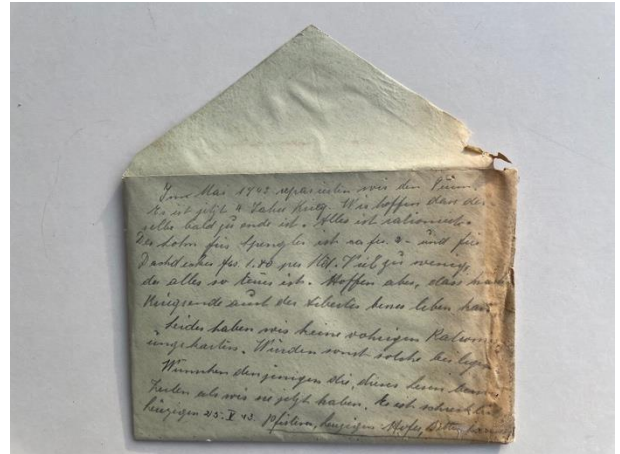 Im Mai 1943 reparierten wir den Turm,
Es ist jetzt 4 Jahre Krieg. Wir hoffen dass der
selbe bald zu ende ist. Alles ist rationiert.
Der Lohn für Spengler ist ca frs. 2.- und für
Dachdecker frs 1.80 per Std. Viel zu wenig,
da alles so teuer ist. Hoffen aber, dass nach
Kriegsende auch der Arbeiter leben kann
Leider haben wir keine Rationier
ungskarten. Würden sonst solche bei legen
Wünschen denjenigen die, dieses lesen
Zeiten als wir sie jetzt haben. Es ist schrecklich
25. V 43. Pfister, Hofer,